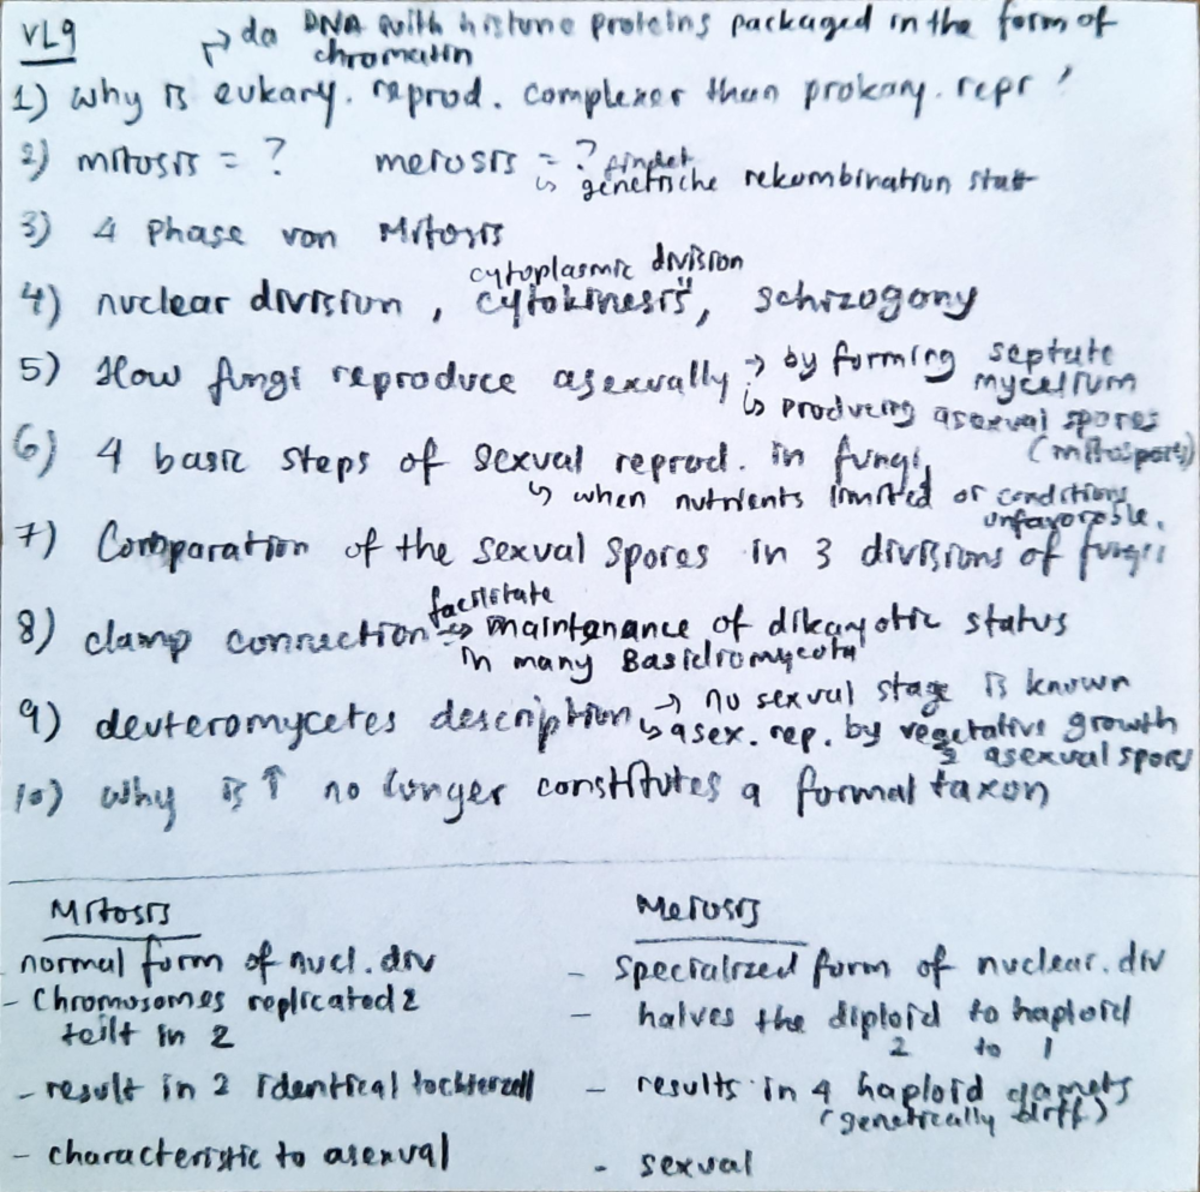 VL9
↱ da DNA with histone proteins packaged in the form of
chromatin
1) Why is eukary. reprod. complexer than prokary. repr ?
2) mitosis = ? meiosis = ? findet
↳ genetische rekombination statt
3) 4 Phase von Mitosis
cytoplasmic division
4) nuclear division, cytokinesis", schizogony
5) How fungi reproduce asexually → by forming septate
mycelium
↳ producing asexual spores
(mitospors)
6) 4 basic steps of sexual reprod. in fungi
↳ when nutrients limited or conditions
unfavorable.
7) Comparation of the sexual spores in 3 divisions of fungi
facilitate
8) clamp connection → maintenance of dikaryotic status
in many Basidiomycota
9) deuteromycetes description → no sexual stage is known
↳ asex. rep. by vegetative growth
& asexual spors
10) Why is ↑ no longer constitutes a formal taxon
Mitosis
- normal form of nucl. div
- Chromosomes replicated &
teilt in 2
- result in 2 identical tochterzell
- characteristic to asexual
Meiosis
- specialized form of nuclear. div
- halves the diploid to haploid
2 to 1
- results in 4 haploid gamets
(genetically diff)
- sexual